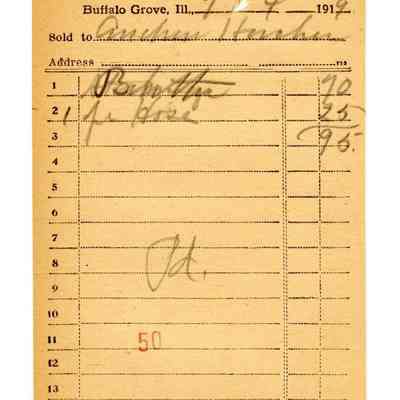 Buffalo Grove, Ill., 7 4 1919
Sold to
Address
1 70
2 1 pr Hose 25
3 95.
4
5
6
7
8 Pd.
9
10
11 50
12
13